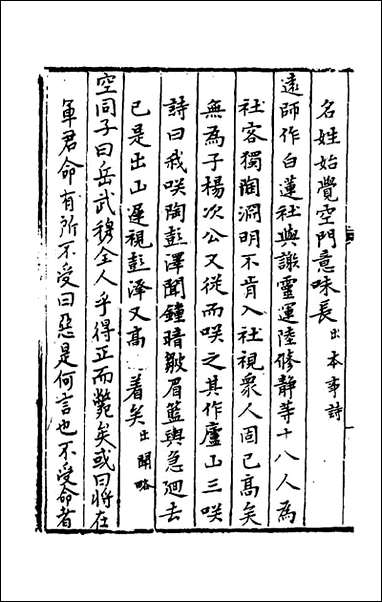 名姓始覺空門意味長出本事詩
遠師作白蓮社與謝靈運陸修静等十八人為
社客獨陶淵明不肯入社視衆人固已高矣
無為子楊次公又從而咲之其作廬山三咲
詩曰我咲陶彭澤聞鐘暗皺眉籃輿急廻去
已是出山遲視彭泽又高 著矣出聞略
空同子曰岳武穆全人乎得正而斃矣或曰將在
軍君命有所不受曰惡是何言也不受命者